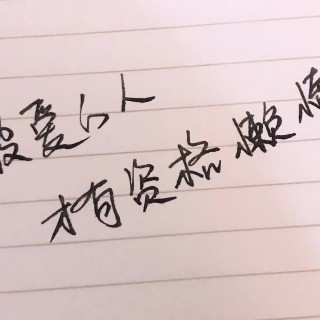 被爱的人
才有资格懒惰